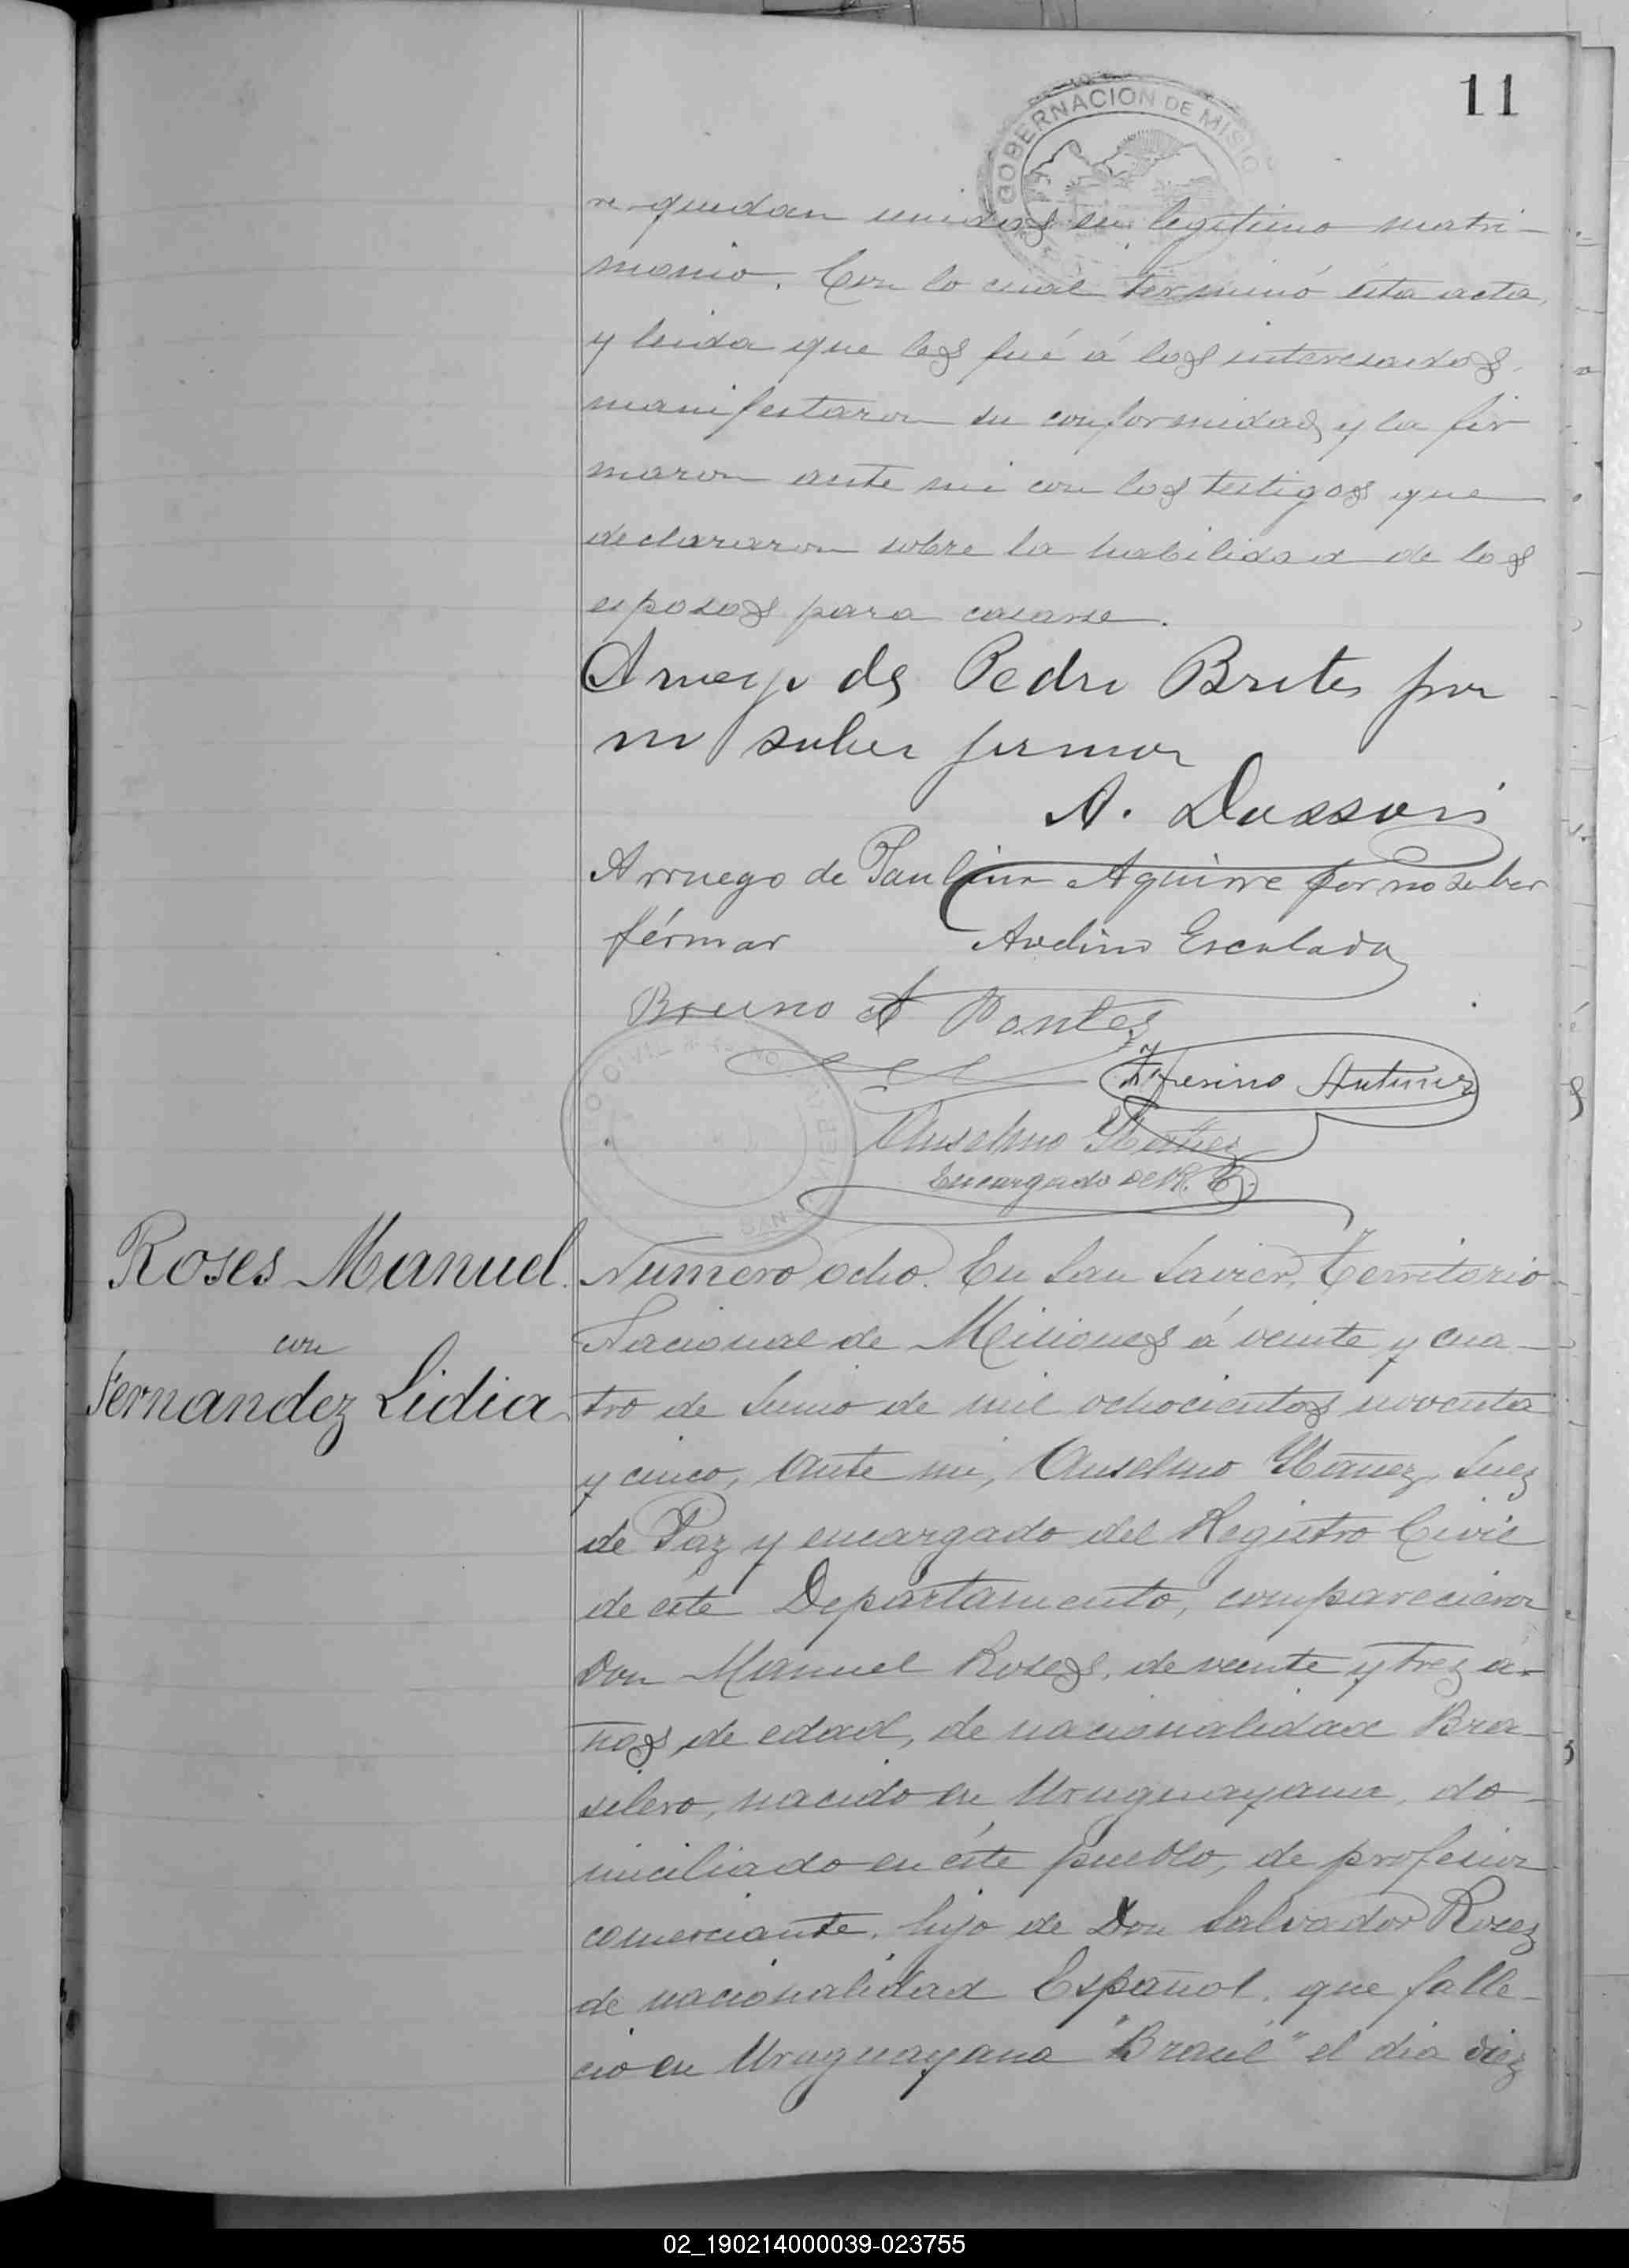 11
GOBERNACION DE MISIO
re quedan unidos en legítimo matri-
monio. Con lo cual terminó ésta acta,
y leida que les fué á los interesados,
manifestaron su conformidad y la fir
maron ante mi con los testigos que
declararon sobre la habilidad de los
esposos para casarse.
Arruego de Pedro Brites por
no saber firmar
A. Dassori
Arruego de Paulina Aguirre por no saber
férmar Avelino Escalada
Bruno A Pontes
Antunez
Anselmo Ybañez
Encargado del R. C.
SAN
Roses Manuel
con
Fernandez Lidia
Numero ocho. En San Javier, Territorio
Nacional de Misiones á veinte y cua-
tro de Junio de mil ochocientos noventa
y cinco, Ante mi, Anselmo Ybañez, Juez
de Paz y encargado del Registro Civil
de éste Departamento, comparecieron
Don Manuel Roses, de veinte y tres á-
ños de edad, de nacionalidad Bra-
silero, nacido en Uruguayana, do-
miciliado en éste pueblo, de profesion
comerciante, hijo de Don Salvador Roses
de nacionalidad Español, que falle-
cio en Uruguayana "Brasil" el dia diez
02_190214000039-023755